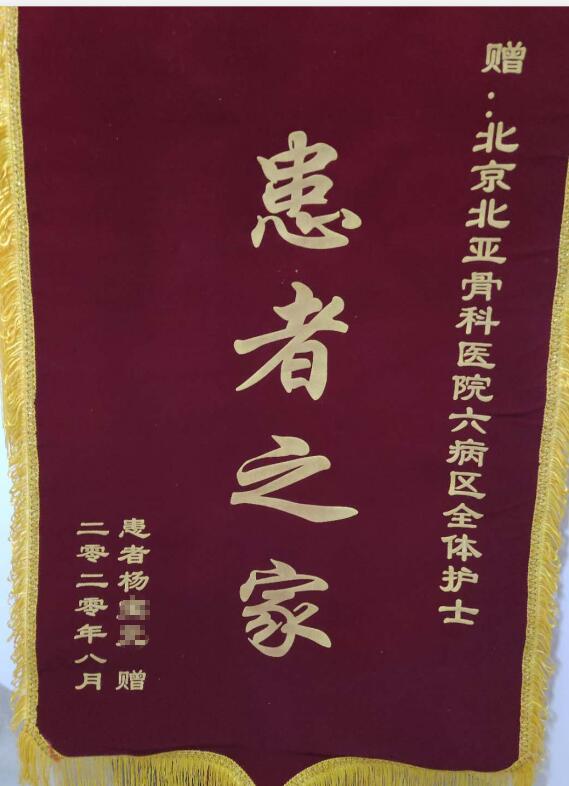 赠：北京北亚骨科医院六病区全体护士
患者之家
患者杨 赠
二零二零年八月